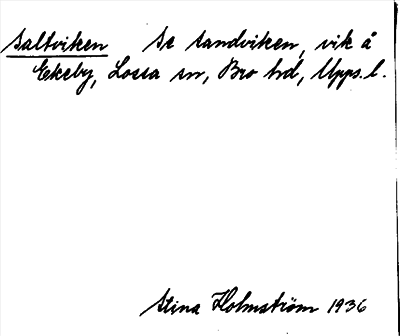 Saltviken Se Sandviken, vik å
Ekeby, Lossa sn, Bro hd, Upps. l.
Stina Holmström 1936